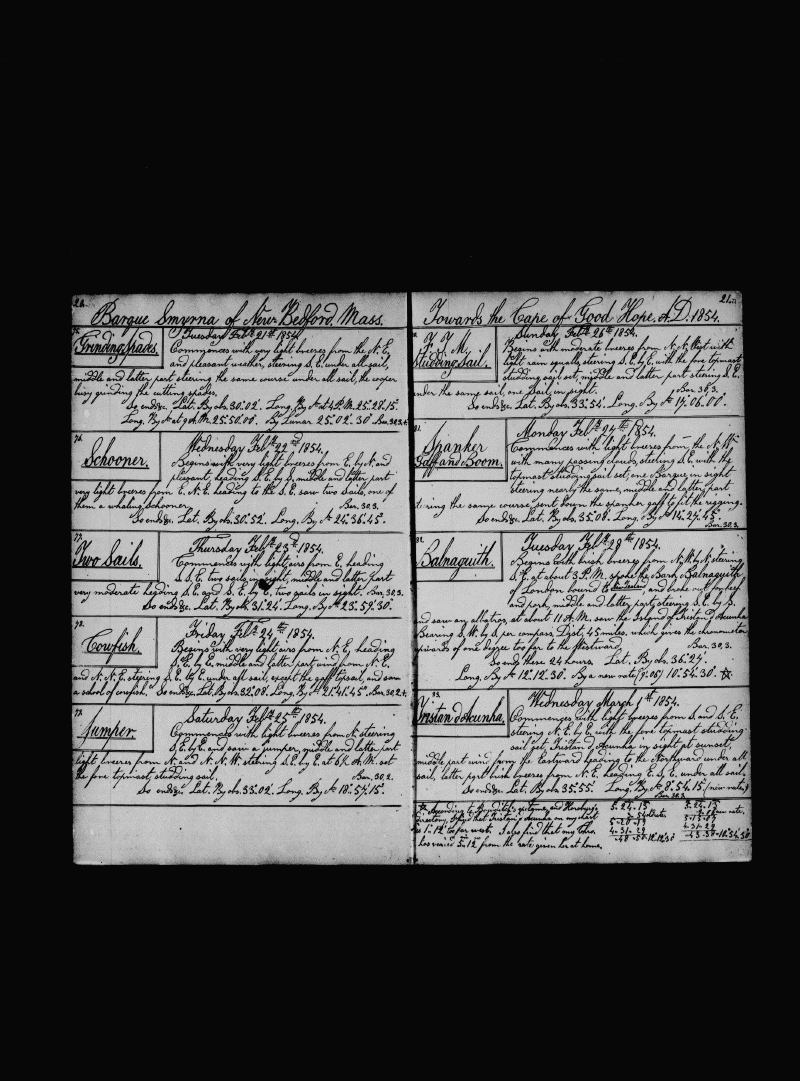 20.
Barque Smyrna of New Bedford, Mass.
Grinding Spades.
Tuesday Feb. 21st 1854.
Commences with very light breezes from the N. E.
and pleasant weather, steering S. E. under all sail,
middle and latter part steering the same course under all sail, the cooper
busy grinding the cutting spades.
So ends &c. Lat. By obs. 30°02'. Long. By at 4 P.M. 25°28'15"
Long. By at 9 A.M. 25°50'00". By Lunar 25°02'30" Bar. 30,3.
76.
Schooner.
Wednesday Feb. 22nd 1854.
Begins with very light breezes from E. by N. and
pleasant, heading S. E. by S. middle and latter part
very light breezes from E. N. E. heading to the S. E. saw two sails, one of
them a whaling schooner. Bar. 30,3.
So ends &c. Lat. By obs. 30°52'. Long. By 24°36'45".
77.
Two Sails.
Thursday Feb. 23d 1854.
Commences with light airs from E. heading
S. S. E. two sails in sight, middle and latter part
very moderate heading S. E. and S. E. by E. two sails in sight. Bar. 30,3.
So ends &c. Lat. By obs. 31°24'. Long. By 23°59'30".
78.
Cowfish.
Friday Feb. 24th 1854.
Begins with very light airs from N. E. heading
S. E. by E. middle and latter part wind from N. E.
and N. N. E. steering S. E. by E. under all sail, except the gaff topsail, and saw
a school of cowfish. So ends &c. Lat. By obs. 32°08'. Long. By 21°41'45". Bar. 30,2
79.
Jumper.
Saturday Feb. 25th 1854.
Commences with light breezes from N. steering
S. E. by E. and saw a jumper, middle and latter part
light breezes from N. and N. N. W. steering S. E. by E. at 6 A. M. set
the fore topmast studding sail. Bar. 30,2.
So ends &c. Lat. By obs. 33°02'. Long. By 18°57'15".
21.
Towards the Cape of Good Hope. A.D. 1854.
F. T. M.
Studding Sail.
Sunday Feb. 26th 1854.
Begins with moderate breezes from N. N. West with
light rain squalls, steering S. E. by E. with the fore topmast
studding sail set, middle and latter part steering S. E.
under the same sail, one sail in sight. Bar. 30,3.
So ends &c. Lat. 33°54'. Long. By 17°06'00".
81.
Spanker
Gaff and Boom.
Monday Feb. 1854.
Commences with light breezes from the N. W.
with many passing clouds, steering S. E. with the
topmast studding sail set, one Barque in sight
steering nearly the same, middle and latter part
the same course sent down the spanker gaff to fit the rigging.
So ends &c. Lat. By obs. 35°08'. Long. By 14°27'45".
Bar. 30,3.
82.
Balnaguith.
Tuesday Feb. 28th 1854.
Begins with brisk breezes from N. W. by N. steering
S. E. at about 3 P. M. spoke the Bark Balnaguith
of London bound to New Zealand, and broke out for beef
and pork, middle and latter part, steering S. E. by S.
and saw an albatros, at about 11 A. M. saw the Island of Tristan D Acunha
Bearing S. W. by S. per compass. Dist. 45 miles. which gives the chronometer
upwards of one degree too far to the Westward. Bar. 30,3.
So ends these 24 hours. Lat. By obs. 36°24'.
Long. By 12°12'30". By a new rate 10°54'30".
83.
Tristan d Acunha.
Wednesday March 1st 1854.
Commences with light breezes from S. and S. E.
steering N. E. by E. with the fore topmast studding
sail set, Tristan d Acunha in sight at sunset,
middle part wind from the Eastward heading to the Northward under all
sail, latter part brisk breezes from N. E. heading E. S. E. under all sail.
So ends &c. Lat. By obs. 35°55'. Long. By 8°54'15" (new rate.)
Bar. 30,3.
According to Bowditch's epitome, and Horsburgh's
Directory, I find that Tristan d Acunha on my chart
is 1° 12' too far west. I also find that my Chro.
has varied from the rate given her at home.
5. 24. 15
4. 31. 29
5. 24. 15
new rate.
4. 31. 29